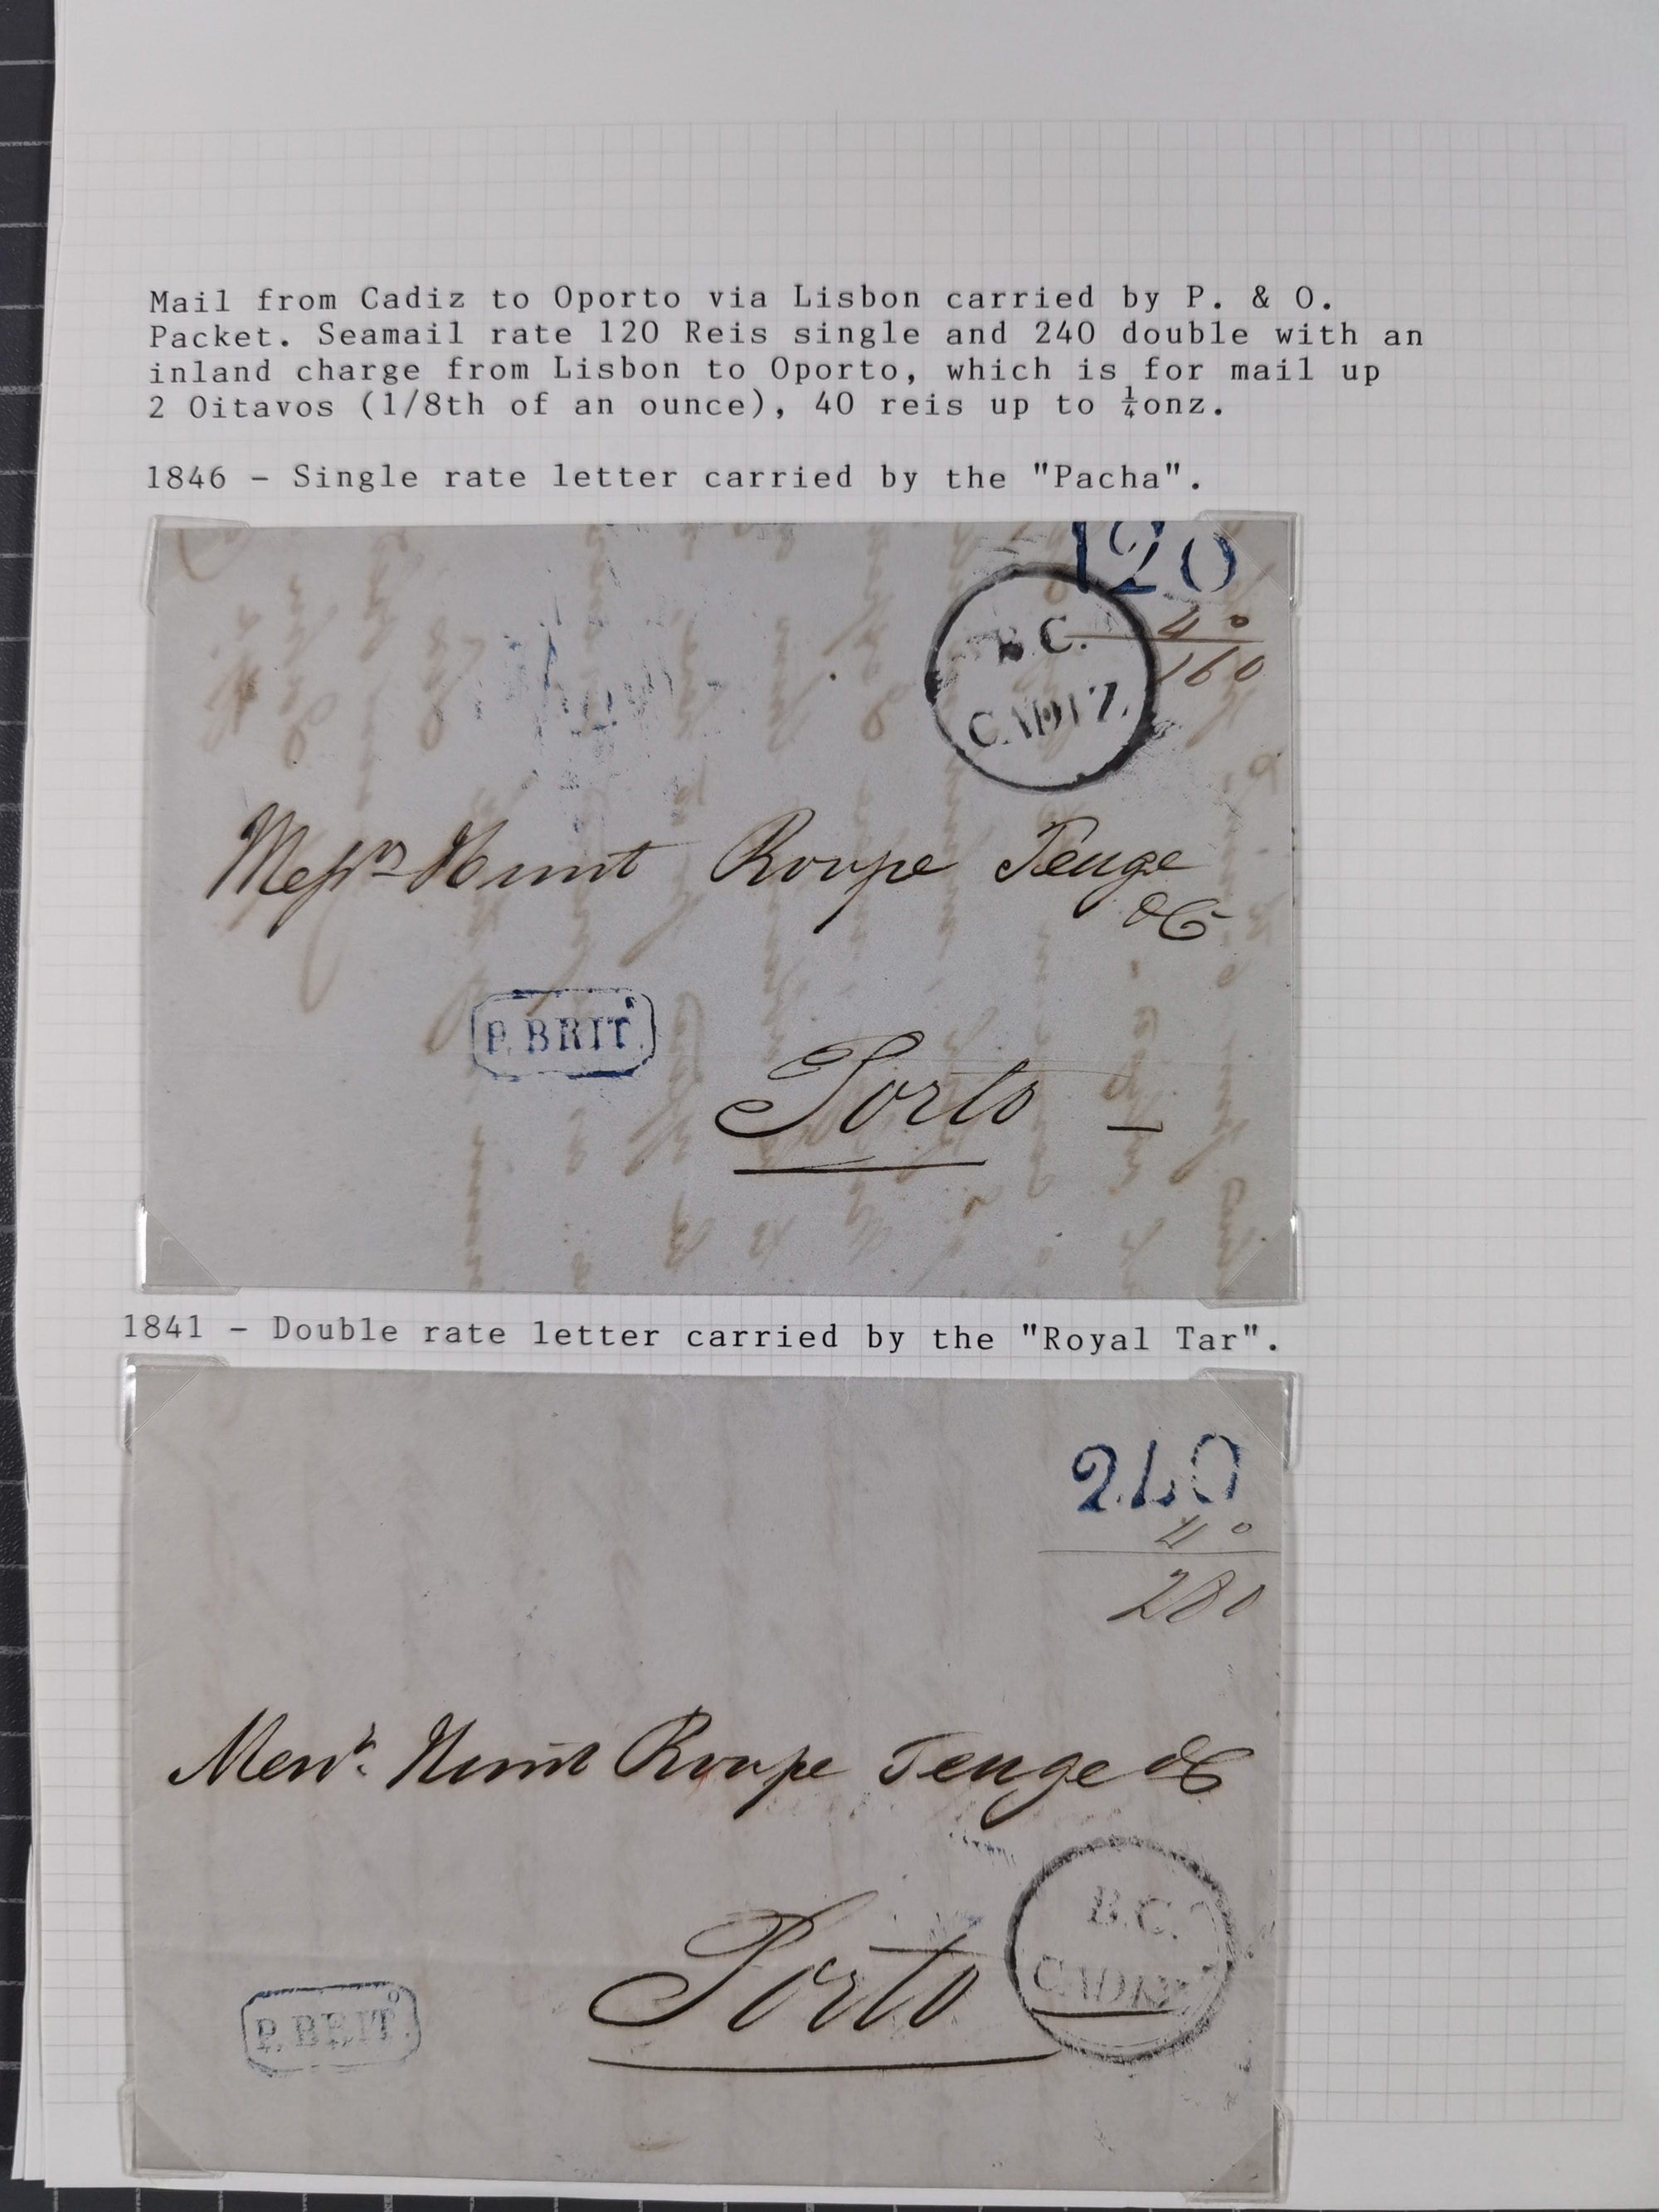 Mail from Cadiz to Oporto via Lisbon carried by P. & O.
Packet. Seamail rate 120 Reis single and 240 double with an
inland charge from Lisbon to Oporto, which is for mail up
2 Oitavos (1/8th of an ounce), 40 reis up to ¼onz.
1846 - Single rate letter carried by the "Pacha".
120
40
160
B.C.
CADIZ.
Messrs Hunt Roupe Teage
& Co
P. BRIT.
Porto
1841 - Double rate letter carried by the "Royal Tar".
240
40
280
Messrs. Hunt Roupe Teage & Co
B.C.
CADIZ.
Porto
P. BRIT.